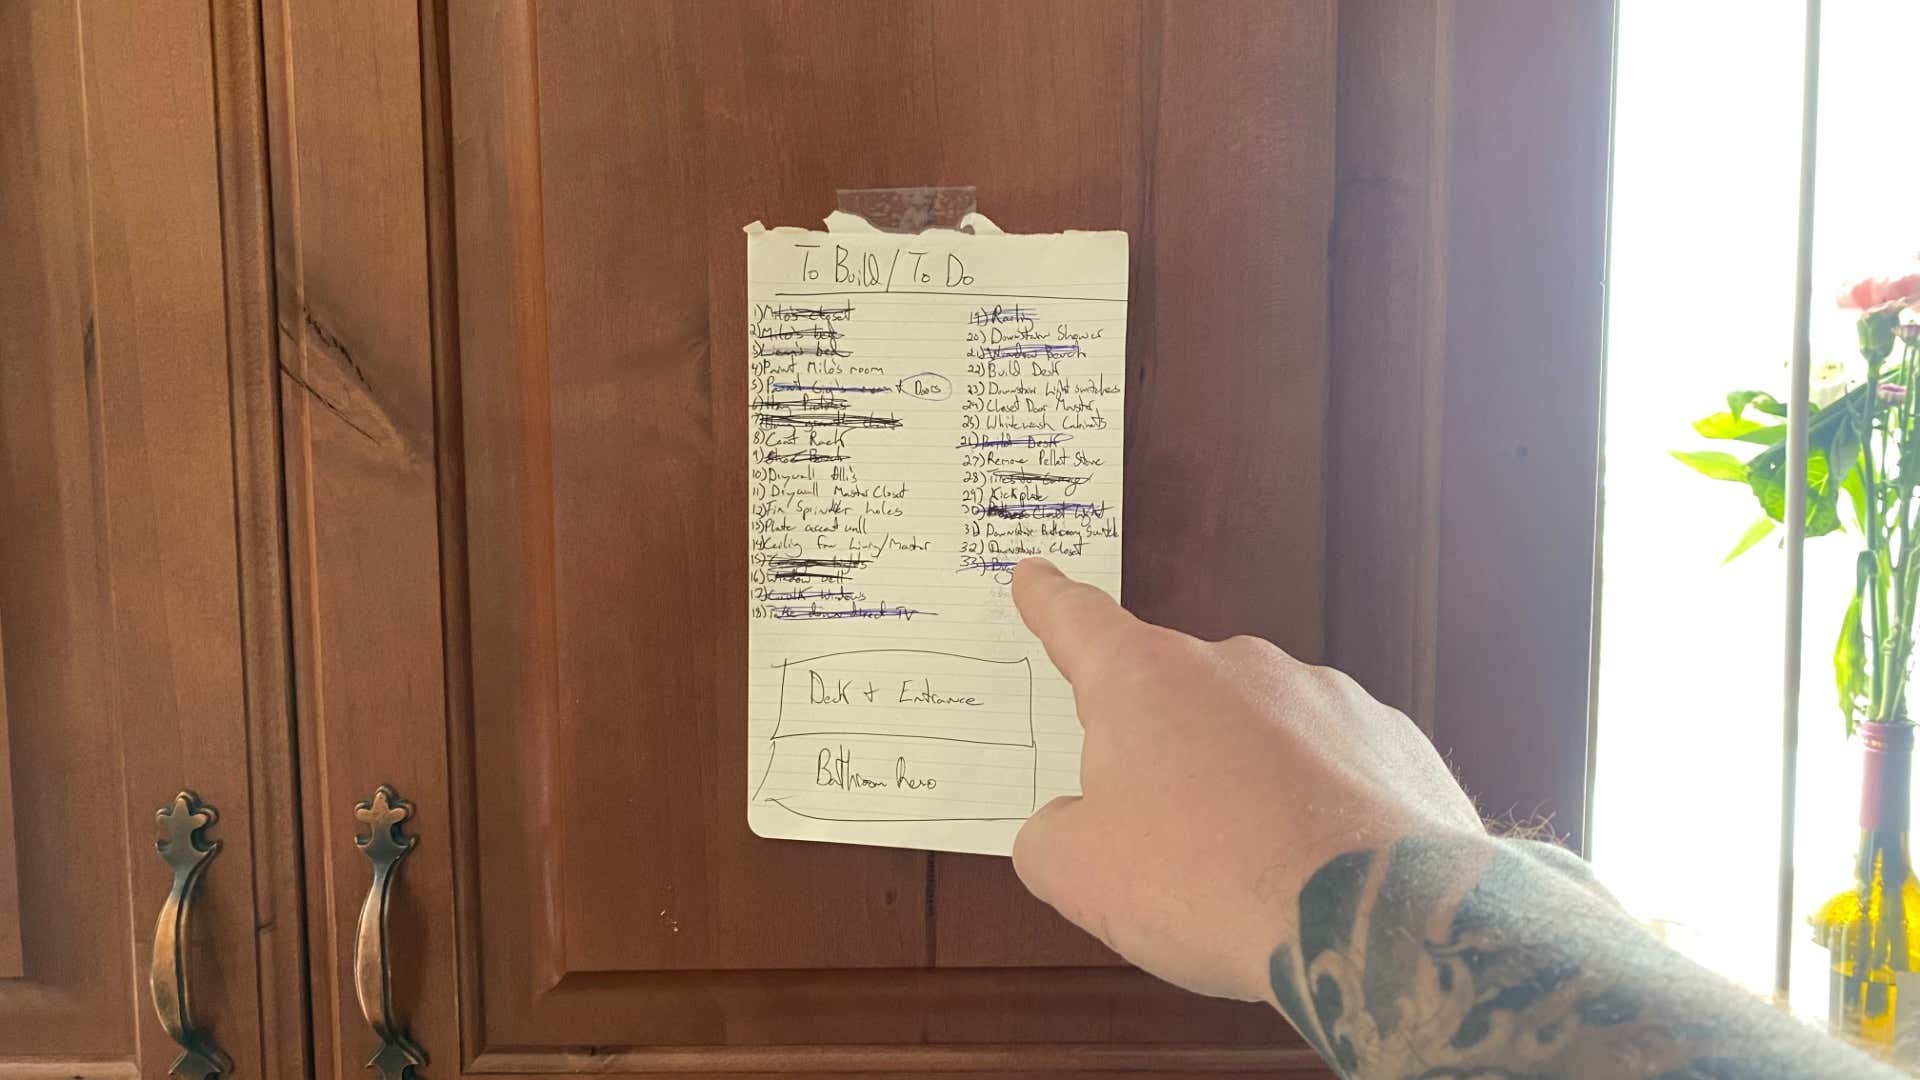 To Build/To Do
1) Milo's closet
2) Milo's bed
3) Liam's bed
4) Paint Milo's room
5) Paint room + Doors
6) Hang Pictures
7) growth chart
8) Coat Rack
9) Shoe Bench
10) Drywall
11) Drywall Master Closet
12) Fix Spindle holes
13) Plate accent wall
14) Ceiling Fan Living/Master
15)
16) Window well
17) Caulk Windows
18) Take down direct TV
19) Railing
20) Downstairs Shower
21) Window Bench
22) Build Desk
23) Downstairs light switches
24) Closet Door Master
25) Whitewash Cabinets
26) Build Desk
27) Remove Pellet Stove
28) Tires to Garage
29) Kickplate
30) Closet Light
31) Downstairs Bathroom Switch
32) Downstairs Closet
33)
Deck + Entrance
Bathroom Reno